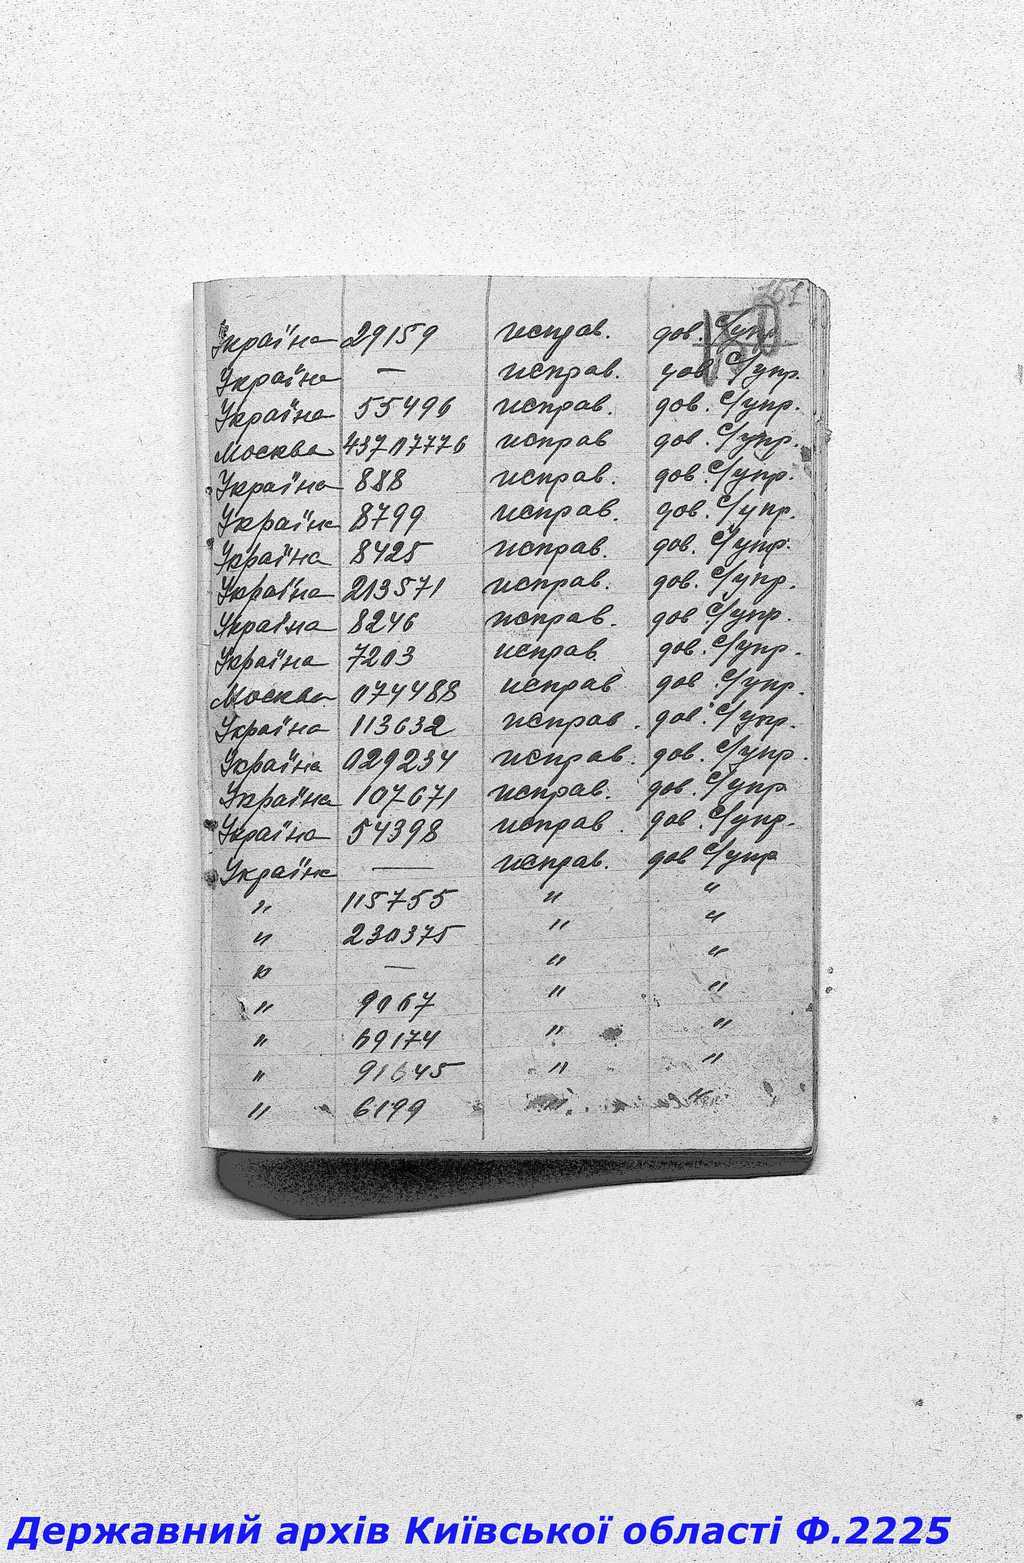 151
150
Україна 29159 исправ. дов. С/упр.
Україна — исправ. дов С/упр.
Україна 55496 исправ. дов. С/упр.
Москва 437017776 исправ дов. С/упр.
Україна 888 исправ. дов. С/упр.
Україна 8799 исправ. дов. С/упр.
Україна 8425 исправ. дов. С/упр.
Україна 213571 исправ. дов. С/упр.
Україна 8246 исправ. дов С/упр.
Україна 7203 исправ. дов. С/упр.
Москва 074488 исправ дов. С/упр.
Україна 113632 исправ. дов. С/упр.
Україна 029234 исправ. дов. С/упр.
Україна 107671 исправ. дов. С/упр
Україна 54398 исправ. дов. С/упр.
Україна — исправ. дов С/упр
" 115755 " "
" 230375 " "
" — " "
" 9067 " "
" 69174 " "
" 91645 " "
" 6199 " "
Державний архів Київської області Ф.2225